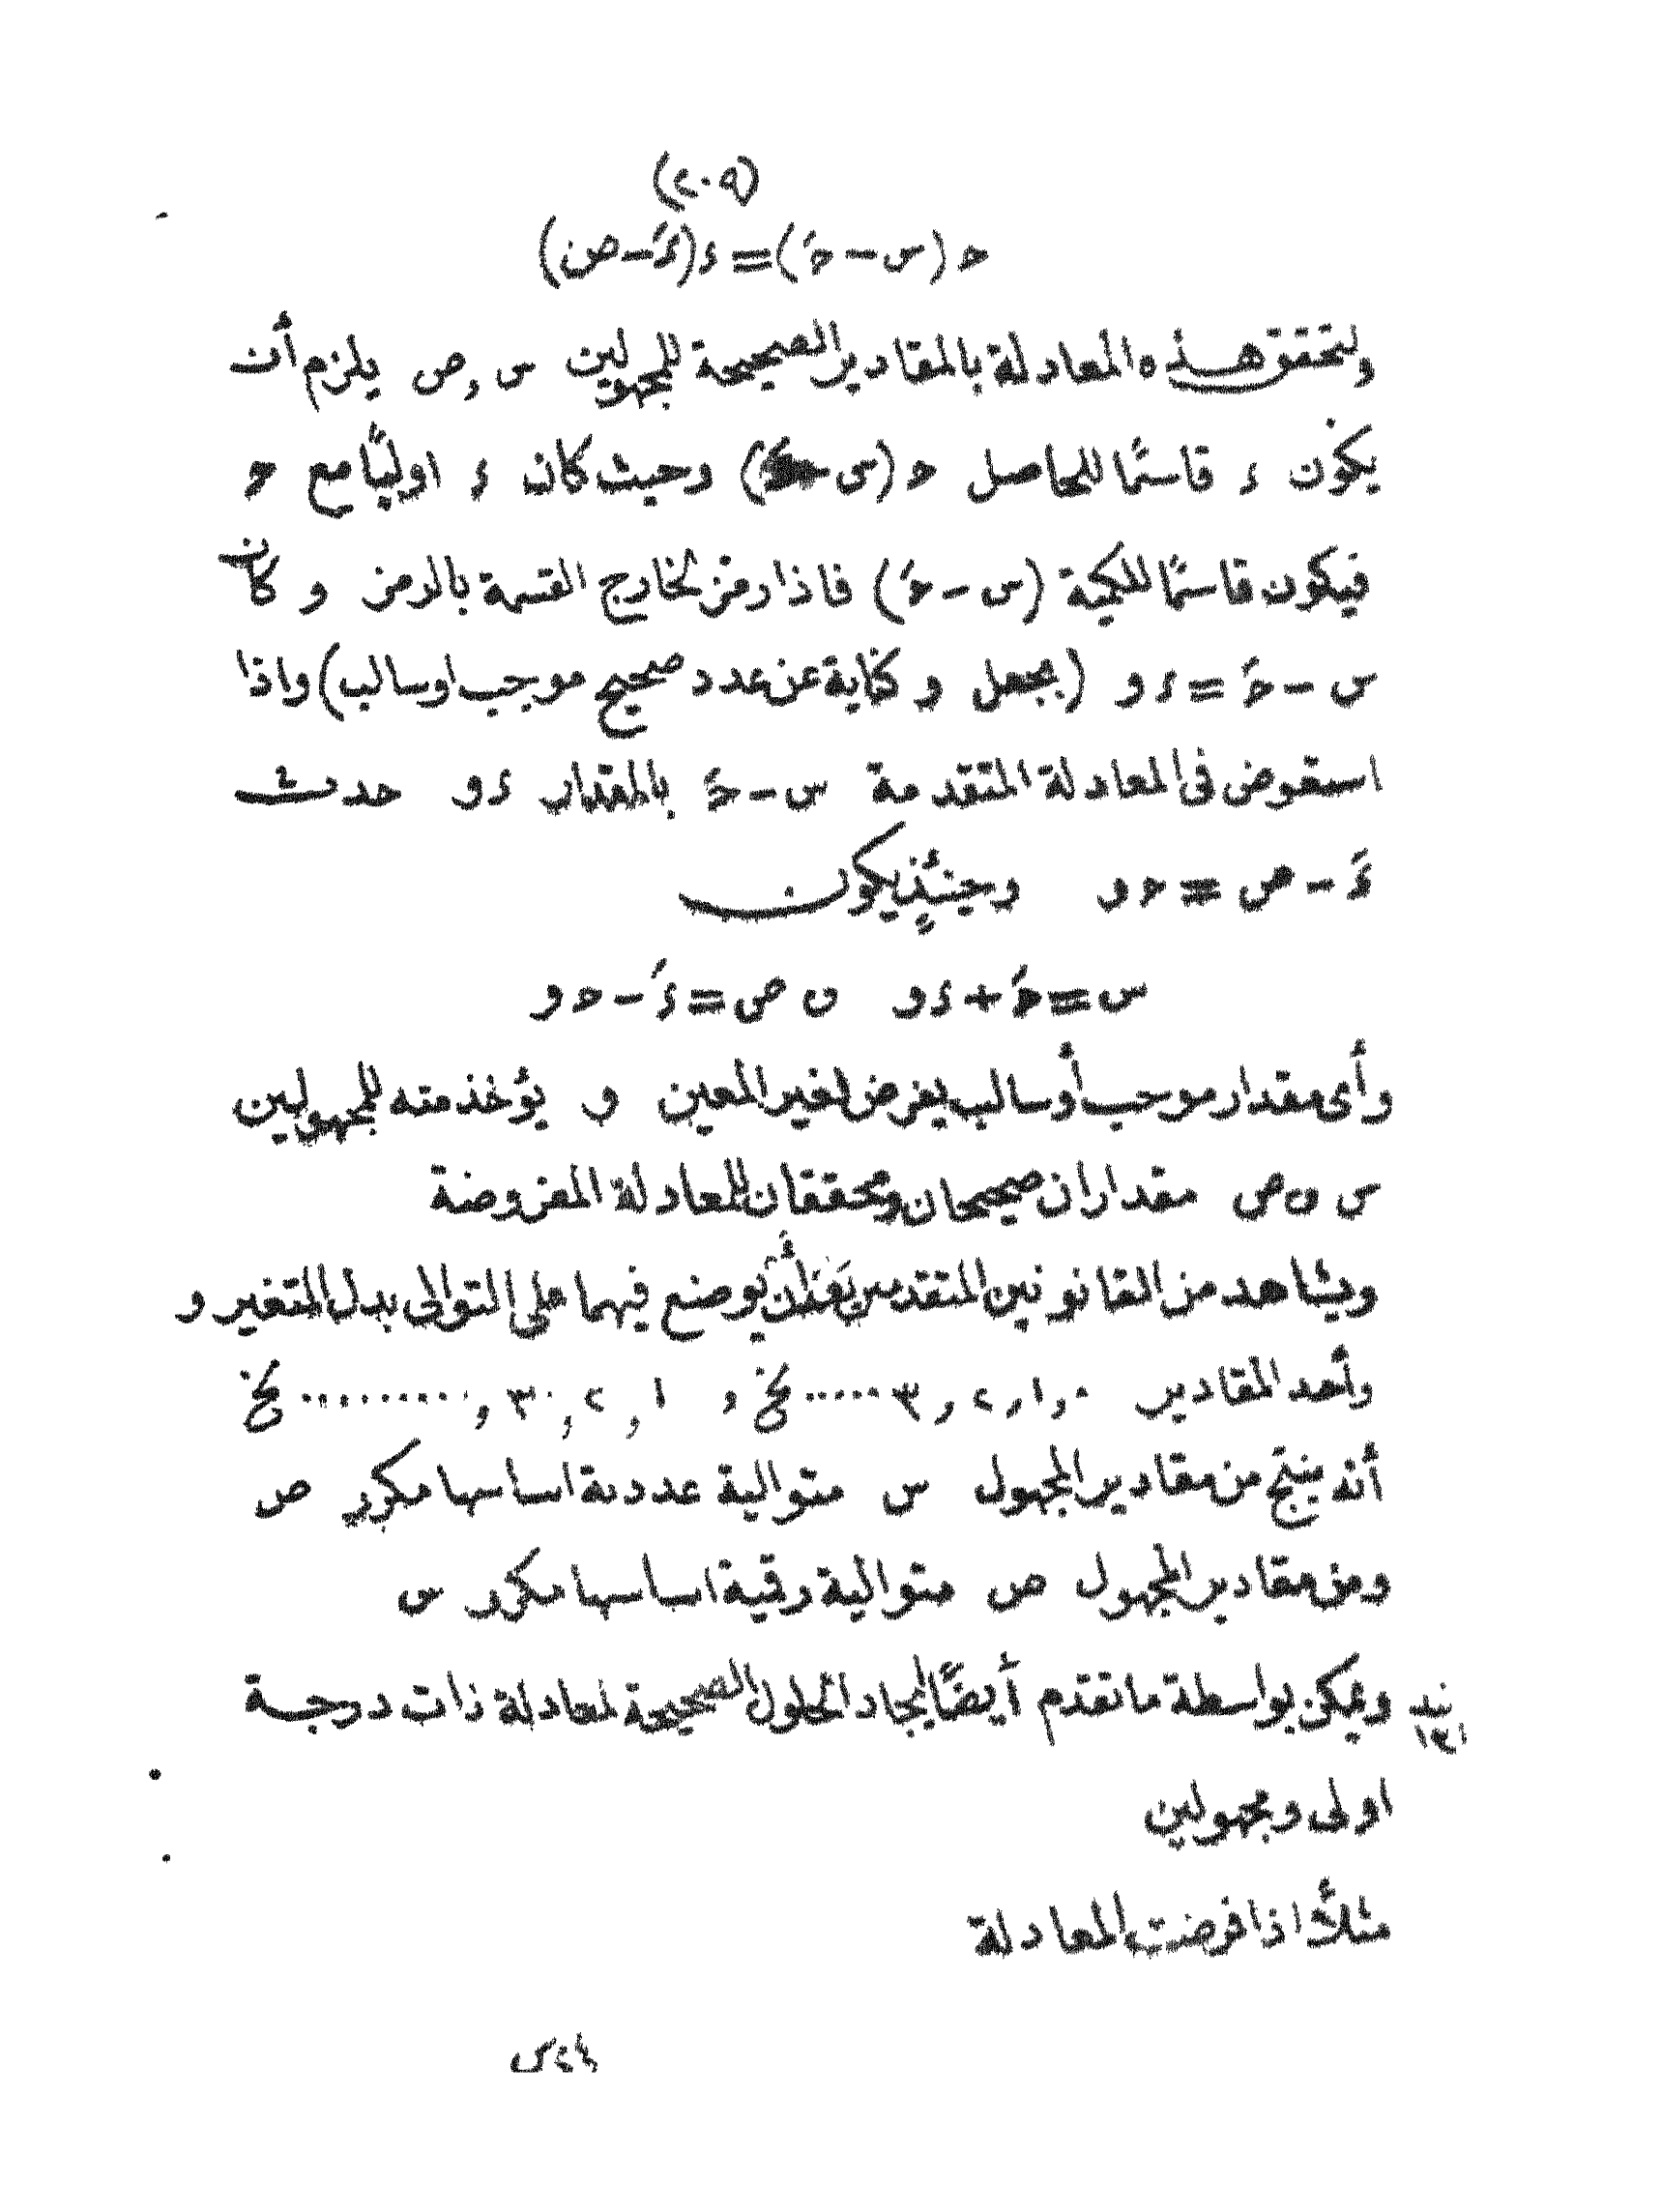 (٢٠٩)
حـ (س − حـَ) = ء (ءَ − ص)
ولتحقق هذه المعادلة بالمقادير الصحيحة للمجهولين س , ص يلزم أن
يكون ء قاسمًا للحاصل حـ (س − حـَ) وحيث كان ء اوليًّا مع حـ
فيكون قاسمًا للكمية (س − حـَ) فاذا رمز لخارج القسمة بالرمز و كان
س − حـَ = ء و (بجعل و كناية عن عدد صحيح موجب او سالب) واذا
استعوض فى المعادلة المتقدمة س − حـَ بالمقدار ء و حدث
ءَ − ص = حـ و وحينئذٍ يكون
س = حـَ + ء و ں ص = ءَ − حـ و
وأى مقدار موجب أو سالب يفرض لغير المعين و يؤخذ منه للمجهولين
س ں ص مقداران صحيحان ومحققان للمعادلة المفروضة
ويشاهد من القانونين المتقدمين أن يوضع فيهما على التوالى بدل المتغير و
وأحد المقادير ٠ , ١ , ٢ , ٣ ..... الخ , ١ , ٢ , ٣ , ......... الخ
أنه ينتج من مقادير المجهول س متوالية عددية اساسها مكرر ص
ومن مقادير المجهول ص متوالية رقية اساسها مكرر س
نبذ ويمكن بواسطة ما تقدم أيضًا ايجاد الحلول الصحيحة لمعادلة ذات درجة
اولى ومجهولين
مثلاً اذا فرضت المعادلة